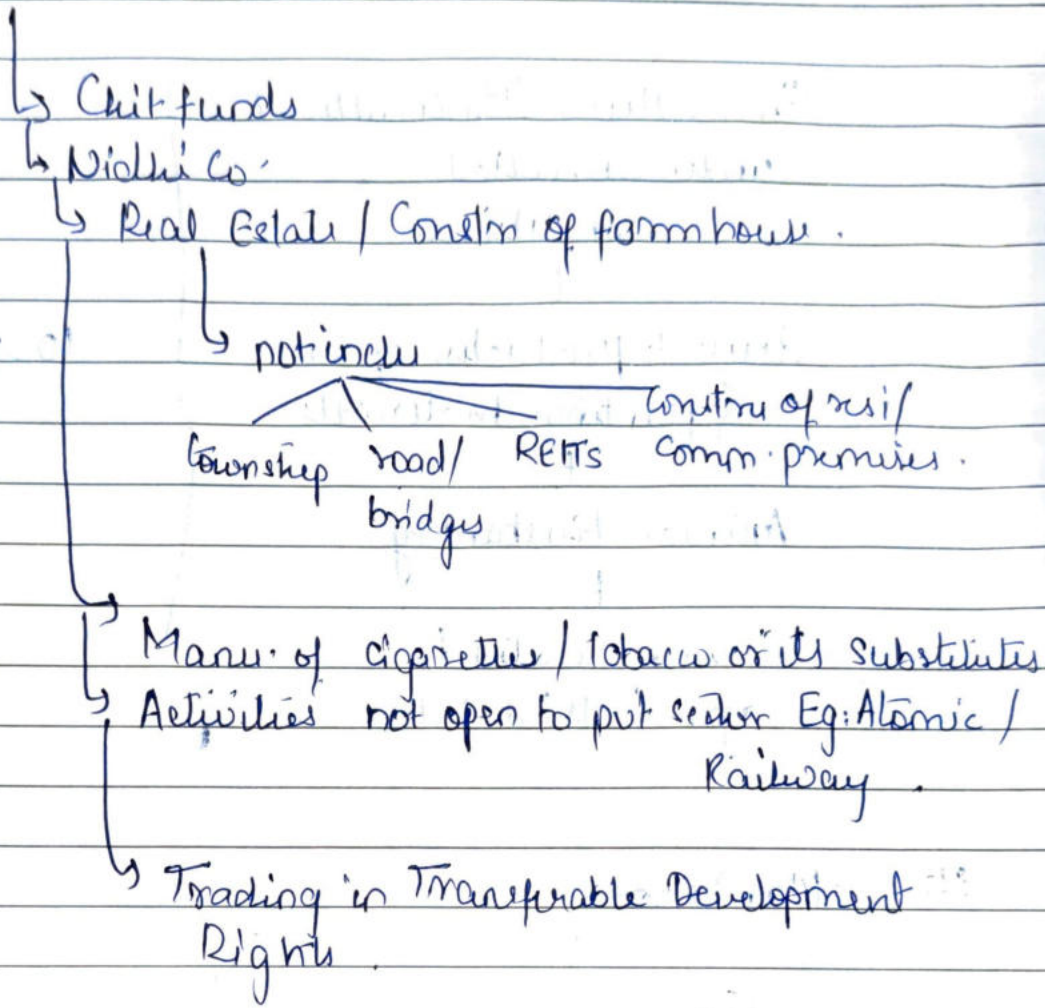 Chit funds
Nidhi Co.
Real Estate / Constrn of farmhouse.
not inclu
township road/ REITs Constru of resi/
bridges comm. premises.
Manu. of cigarettes / Tobacco or its Substitutes
Activities not open to pvt sector Eg: Atomic /
Railway.
Trading in Transferable Development
Rights.